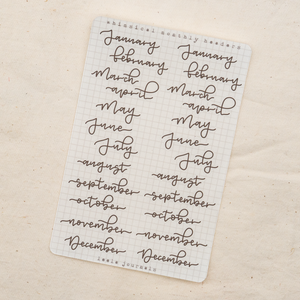 whimsical monthly headers
January January
february february
March March
april april
May May
June June
July July
august august
september september
october october
november november
December December